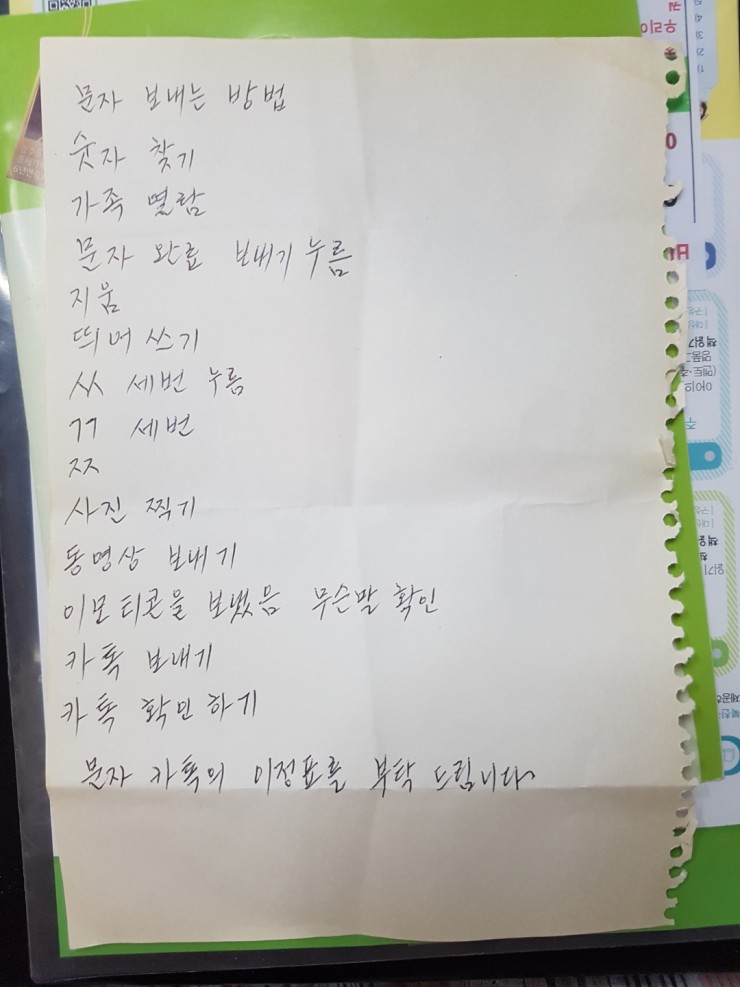 문자 보내는 방법
숫자 찾기
가족 열람
문자 완료 보내기 누름
지움
띄어 쓰기
ㅆ 세번 누름
ㄲ 세번
ㅉ
사진 찍기
동영상 보내기
이모티콘을 보냈음 무슨말 확인
카톡 보내기
카톡 확인 하기
문자 카톡의 이정표를 부탁 드립니다
우리아
책읽기